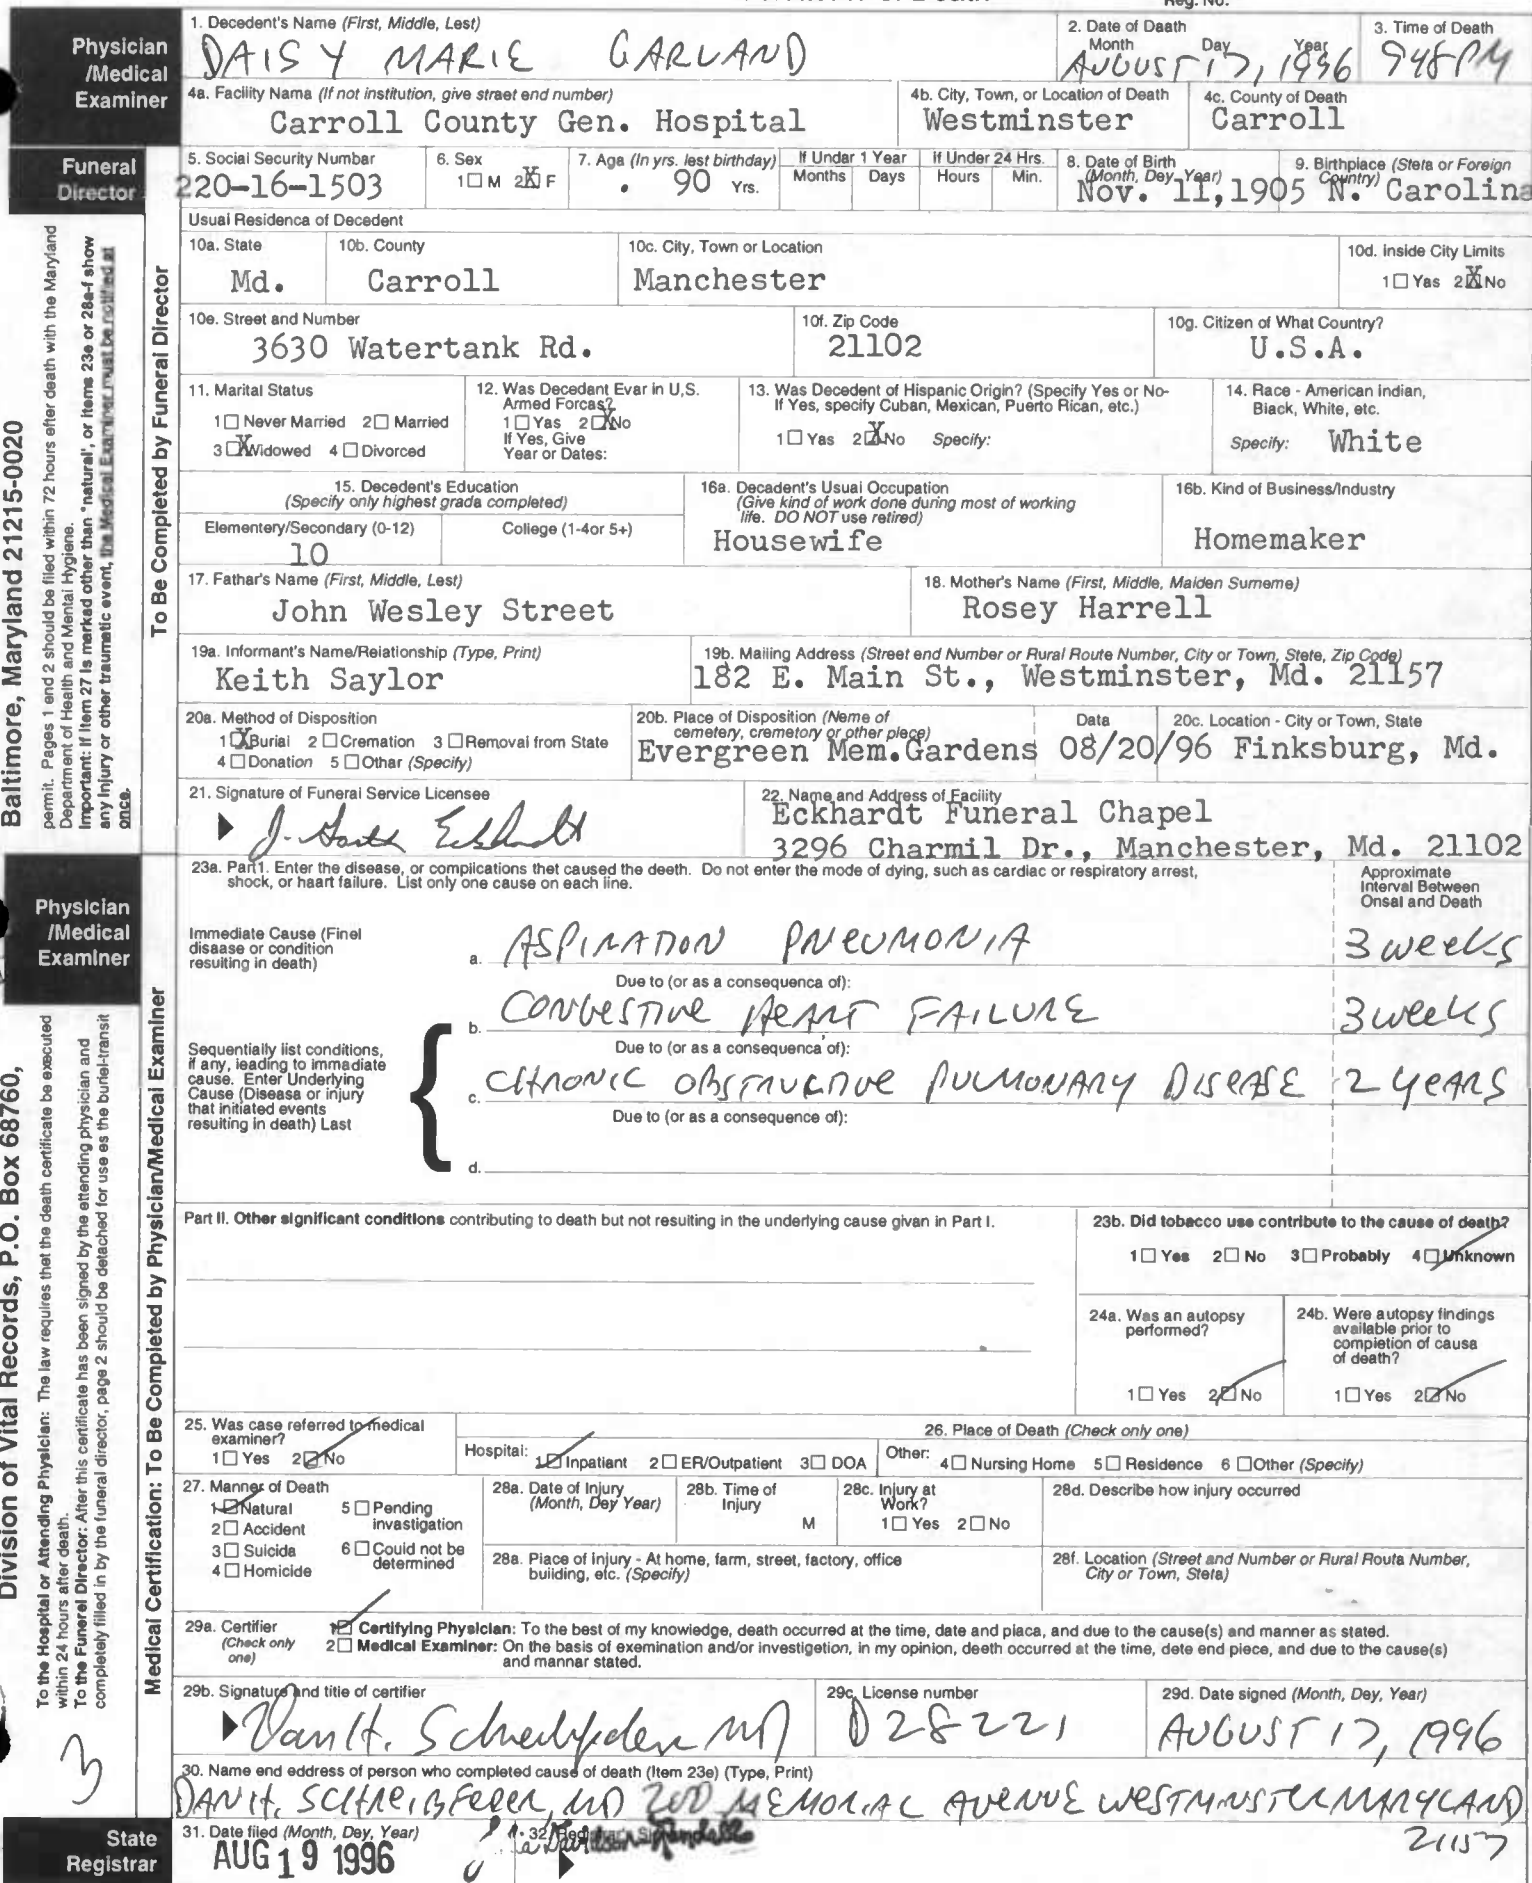 Reg. No.
Physician
/Medical
Examiner
1. Decedent's Name (First, Middle, Lest)
DAISY MARIE GARLAND
2. Date of Daath
Month Day Year
AUGUST 17, 1996
3. Time of Death
948 PM
4a. Facility Name (If not institution, give straet end number)
Carroll County Gen. Hospital
4b. City, Town, or Location of Death
Westminster
4c. County of Death
Carroll
Funeral
Director
5. Social Security Numbar
220-16-1503
6. Sex
1☐ M 2☒ F
7. Aga (In yrs. lest birthday)
90 Yrs.
If Undar 1 Year
Months Days
If Under 24 Hrs.
Hours Min.
8. Date of Birth
(Month, Dey, Year)
Nov. 11,1905
9. Birthplace (Steta or Foreign
Country)
N. Carolina
Usuai Residenca of Decedent
10a. State
Md.
10b. County
Carroll
10c. City, Town or Location
Manchester
10d. inside City Limits
1☐ Yas 2☒ No
10e. Street and Number
3630 Watertank Rd.
10f. Zip Code
21102
10g. Citizen of What Country?
U.S.A.
11. Marital Status
1☐ Never Married 2☐ Married
3☒ Widowed 4☐ Divorced
12. Was Decedant Evar in U,S.
Armed Forcas?
1☐ Yas 2☒ No
If Yes, Give
Year or Dates:
13. Was Decedent of Hispanic Origin? (Specify Yes or No-
If Yes, specify Cuban, Mexican, Puerto Rican, etc.)
1☐ Yas 2☒ No Specify:
14. Race - American indian,
Biack, White, etc.
Specify: White
15. Decedent's Education
(Specify only highest grada completed)
Elementery/Secondary (0-12)
10
College (1-4or 5+)
16a. Decadent's Usuai Occupation
(Give kind of work done during most of working
life. DO NOT use retired)
Housewife
16b. Kind of Business/Industry
Homemaker
17. Fathar's Name (First, Middle, Lest)
John Wesley Street
18. Mother's Name (First, Middle, Maiden Surneme)
Rosey Harrell
19a. Informant's Name/Reiationship (Type, Print)
Keith Saylor
19b. Maiiing Address (Street end Number or Rural Route Number, City or Town, Stete, Zip Code)
182 E. Main St., Westminster, Md. 21157
20a. Method of Disposition
1☒ Burial 2☐ Cremation 3☐ Removal from State
4☐ Donation 5☐ Othar (Specify)
20b. Place of Disposition (Neme of
cemetery, cremetory or other plece)
Evergreen Mem.Gardens
Data
08/20/96
20c. Location - City or Town, State
Finksburg, Md.
21. Signature of Funeral Service Licensee
Eckhardt
22. Name and Address of Facility
Eckhardt Funeral Chapel
3296 Charmil Dr., Manchester, Md. 21102
Baltimore, Maryland 21215-0020
permit. Pages 1 end 2 should be filed within 72 hours efter death with the Maryland
Department of Health and Mentai Hygiene.
Important: If Item 27 is markad other than "natural", or items 23e or 28e-f show
any injury or other traumatic event, the Medical Examiner must be notified at
once.
To Be Completed by Funeral Director
Physician
/Medical
Examiner
23a. Part1. Enter the disease, or compiications thet caused the deeth. Do not enter the mode of dying, such as cardiac or respiratory arrest,
shock, or haart failure. List only one cause on each line.
Approximate
Interval Between
Onsal and Death
Immediate Cause (Finel
disaase or condition
resulting in death)
a. ASPIRATION PNEUMONIA 3 weeks
Due to (or as a consequenca of):
b. CONGESTIVE HEART FAILURE 3 weeks
Due to (or as a consequenca of):
c. CHRONIC OBSTRUCTIVE PULMONARY DISEASE 2 YEARS
Due to (or as a consequence of):
d.
Sequentially list conditions,
if any, leading to immediate
cause. Enter Underlying
Cause (Diseasa or injury
that initiated events
resulting in death) Last
Part II. Other significant conditions contributing to death but not resulting in the underlying cause givan in Part I.
23b. Did tobacco use contribute to the cause of death?
1☐ Yes 2☐ No 3☐ Probably 4☑ Unknown
24a. Was an autopsy
performed?
1☐ Yes 2☑ No
24b. Were autopsy findings
available prior to
completion of causa
of death?
1☐ Yes 2☑ No
25. Was case referred to medical
examiner?
1☐ Yes 2☑ No
26. Place of Death (Check only one)
Hospital: 1☑ Inpatiant 2☐ ER/Outpatient 3☐ DOA Other: 4☐ Nursing Home 5☐ Residence 6☐ Other (Specify)
27. Manner of Death
1☑ Natural
2☐ Accident
3☐ Suicida
4☐ Homicide
5☐ Pending
invastigation
6☐ Couid not be
determined
28a. Date of Injury
(Month, Dey Year)
28b. Time of
Injury
M
28c. Injury at
Work?
1☐ Yes 2☐ No
28d. Describe how injury occurred
28a. Place of injury - At home, farm, street, factory, office
building, etc. (Specify)
28f. Location (Street and Number or Rural Routa Number,
City or Town, Steta)
29a. Certifier
(Check only
one)
1☑ Certifying Physician: To the best of my knowledge, death occurred at the time, date and placa, and due to the cause(s) and manner as stated.
2☐ Medical Examiner: On the basis of exemination and/or investigetion, in my opinion, deeth occurred at the time, dete end piece, and due to the cause(s)
and mannar stated.
29b. Signature and titie of certifier
Dan H. Schreibfeder MD
29c. License number
D28221
29d. Date signed (Month, Dey, Year)
AUGUST 17, 1996
30. Name end eddress of person who completed cause of death (Item 23e) (Type, Print)
DAN H. SCHREIBFEDER, MD 200 MEMORIAL AVENUE WESTMINSTER MARYLAND
21157
Division of Vital Records, P.O. Box 68760,
To the Hospital or Attending Physician: The law requires thet the death certificate be executed
within 24 hours after death.
To the Funerel Director: After this certificate has been signed by the ettending physician and
completely filled in by the funeral director, page 2 should be detached for use es the buriel-transit
Medical Certification: To Be Completed by Physician/Medical Examiner
3
State
Registrar
31. Date filed (Month, Dey, Year)
AUG 19 1996
32.